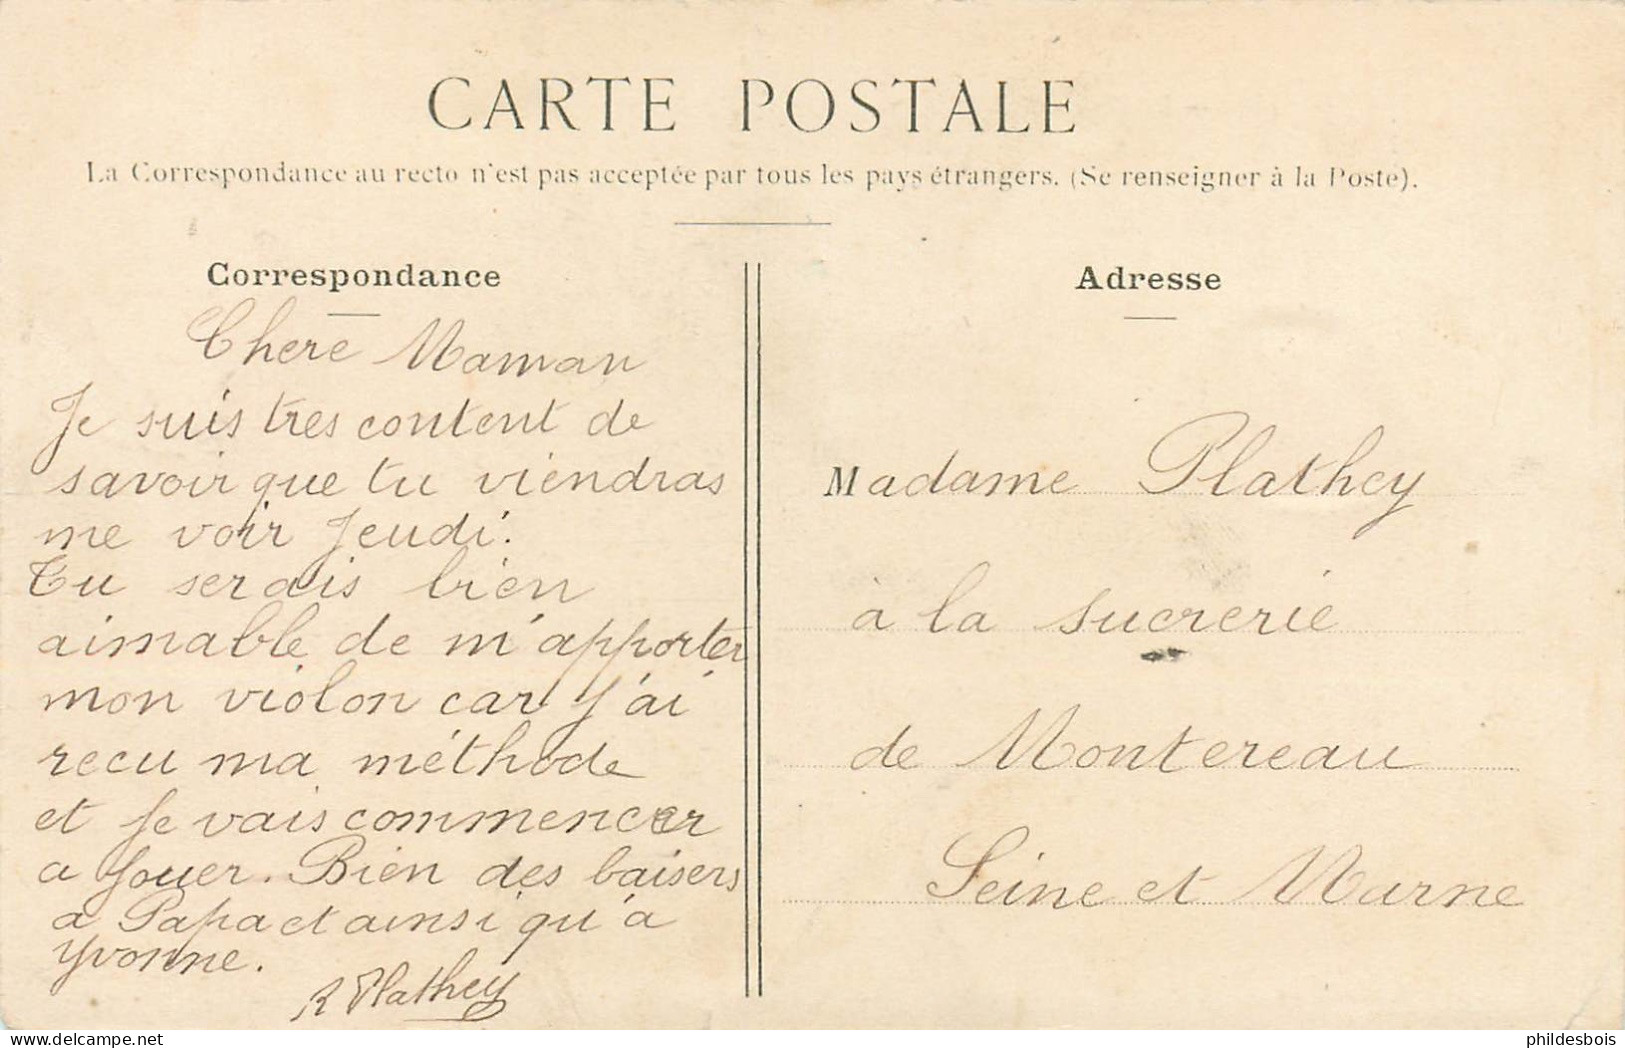 CARTE POSTALE
La Correspondance au recto n'est pas acceptée par tous les pays étrangers. (Se renseigner à la Poste).
Correspondance
Chere Maman
Je suis tres content de
savoir que tu viendras
me voir Jeudi.
Tu serais bien
aimable de m'apporter
mon violon car j'ai
recu ma méthode
et je vais commencer
a jouer. Bien des baisers
a Papa et ainsi qu'à
Yvonne.
R Plathey
Adresse
Madame Plathey
à la sucrerie
de Montereau
Seine et Marne
delcampe.net
phildesbois